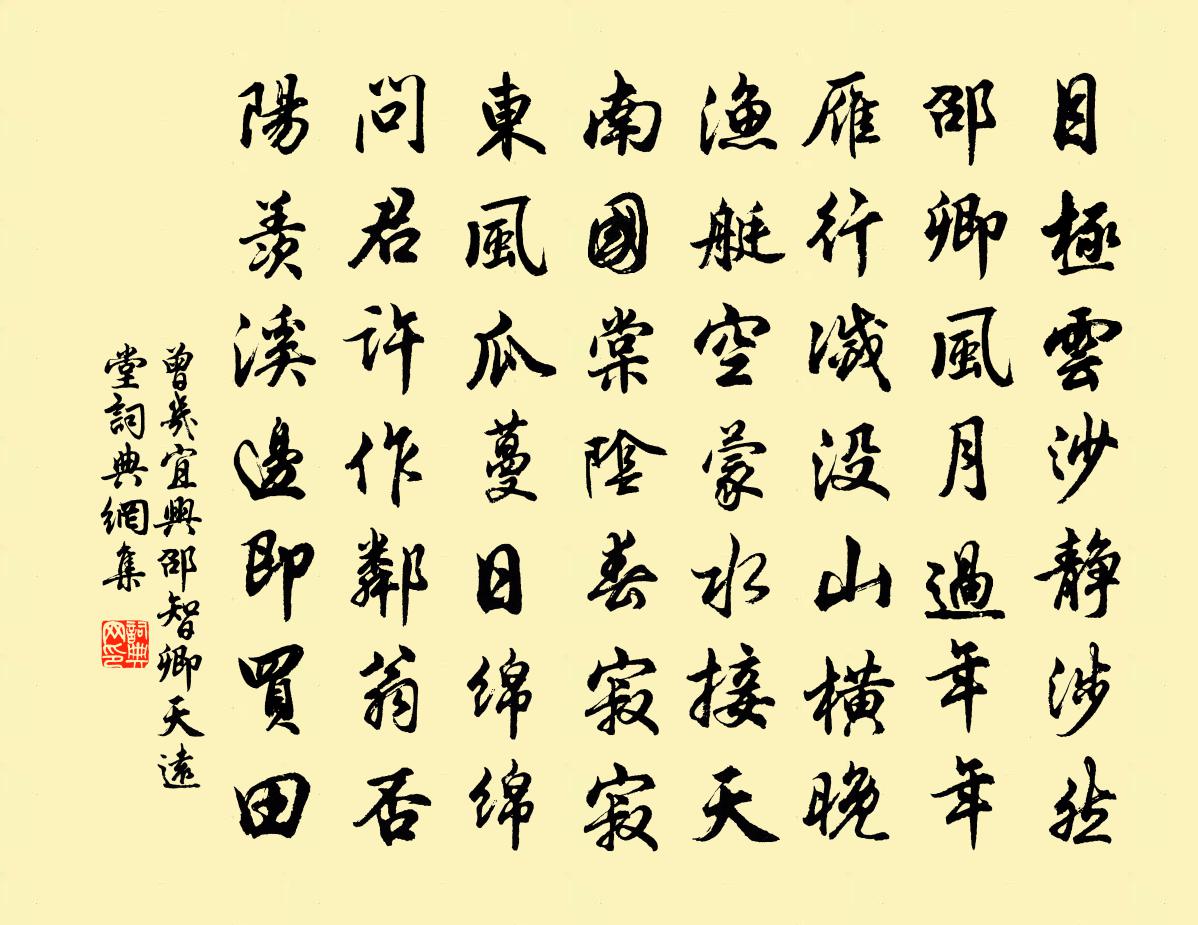 目極雲沙靜渺然
邵卿風月過年年
雁行滅没山橫晚
漁艇空蒙水接天
南國棠陰春寂寂
東風瓜蔓日綿綿
問君許作鄰翁否
陽羨溪邊即買田
曾幾宜興邵智卿天遠
堂詞典網集
詞典
网印